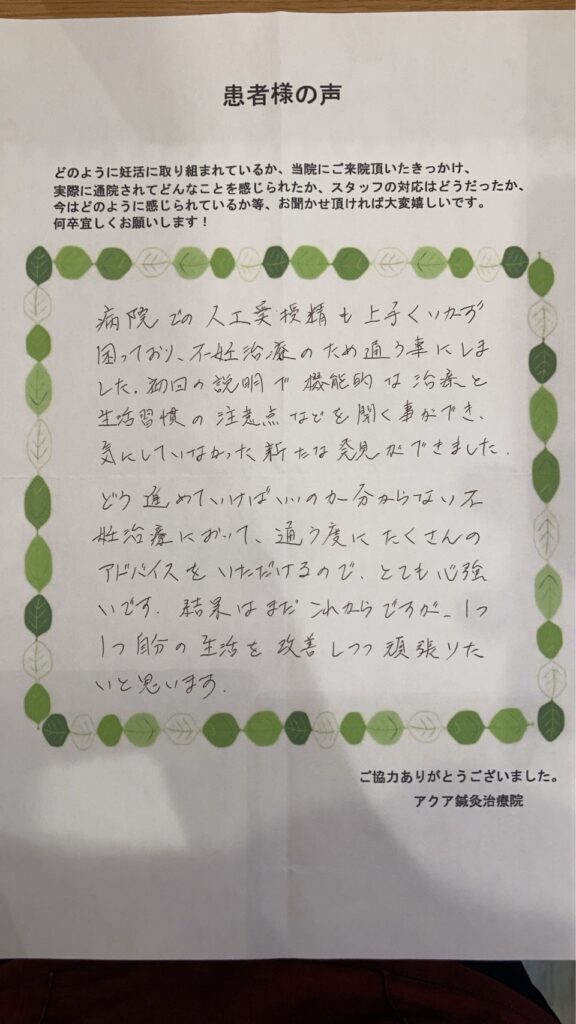 患者様の声
どのように妊活に取り組まれているか、当院にご来院頂いたきっかけ、
実際に通院されてどんなことを感じられたか、スタッフの対応はどうだったか、
今はどのように感じられているか等、お聞かせ頂ければ大変嬉しいです。
何卒宜しくお願いします！
病院での人工受授精も上手くいかず
困っており、不妊治療のため通う事にしま
した。初回の説明で機能的な治療と
生活習慣の注意点などを聞く事ができ、
気にしていなかった新たな発見ができました。
どう進めていけばいいのか分からない不
妊治療において、通う度にたくさんの
アドバイスをいただけるので、とても心強
いです。結果はまだこれからですが、1つ
1つ自分の生活を改善しつつ頑張りた
いと思います。
ご協力ありがとうございました。
アクア鍼灸治療院